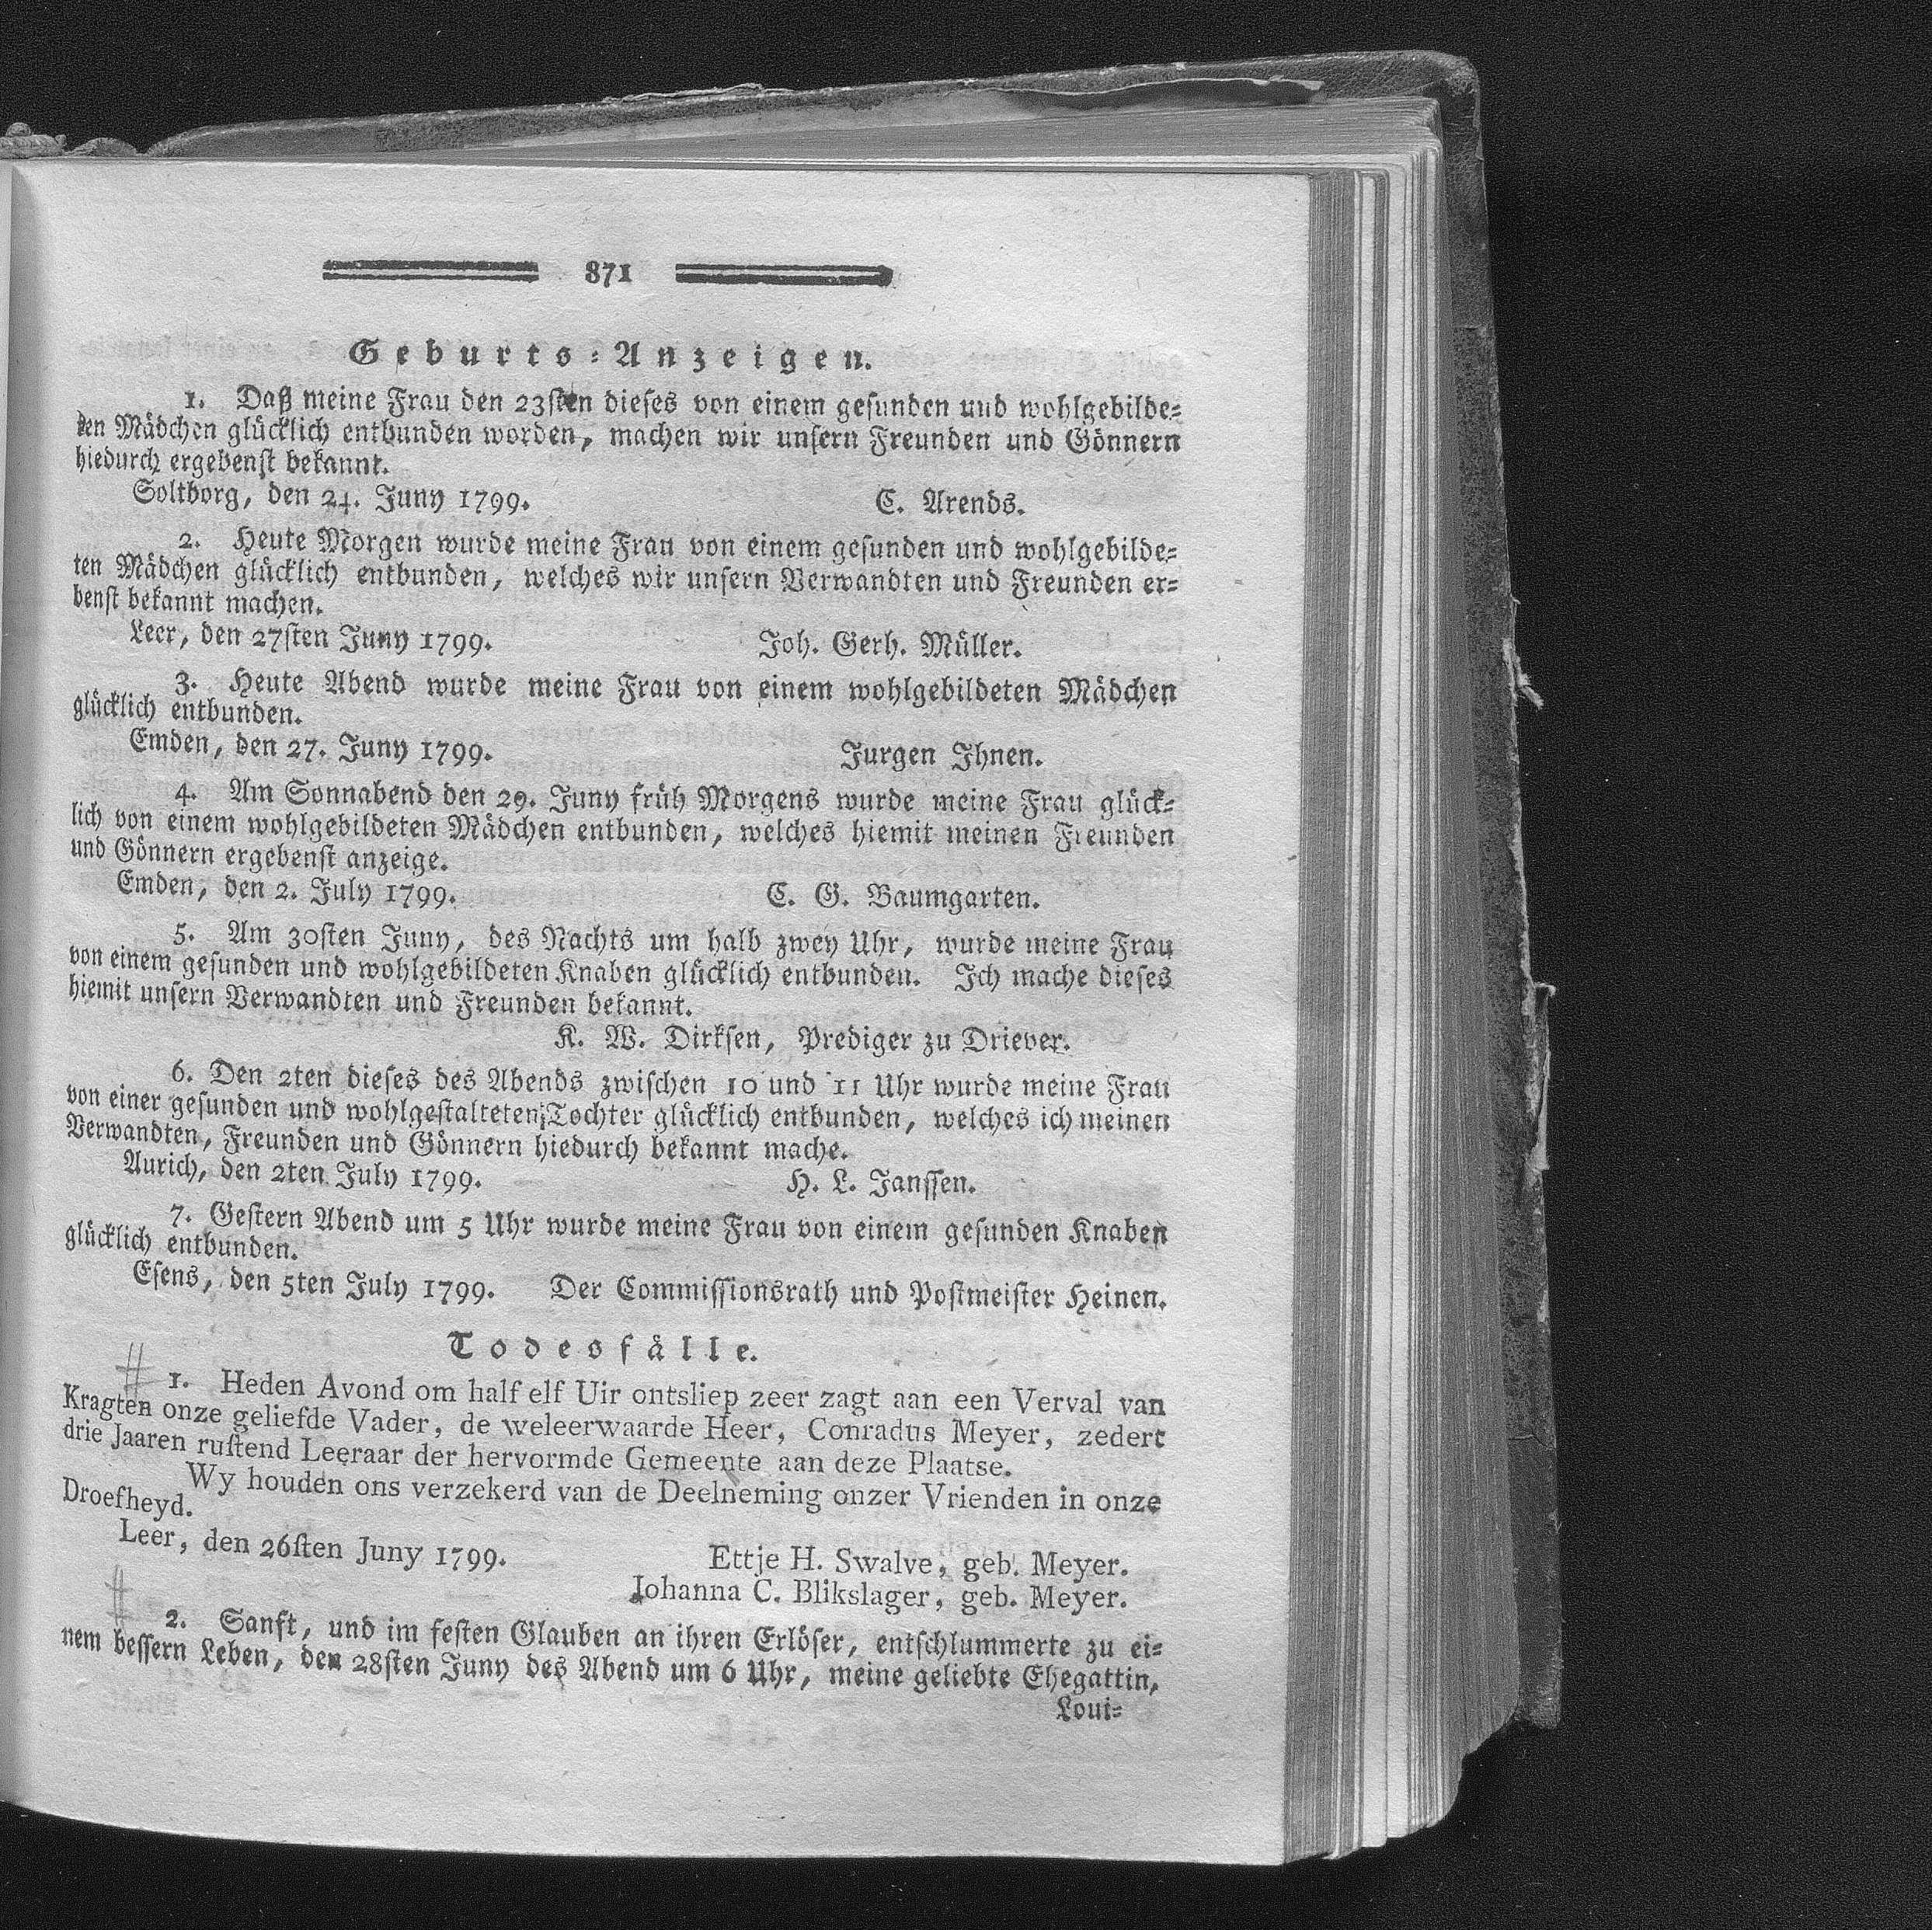 871
Geburts-Anzeigen.
1. Daß meine Frau den 23sten dieses von einem gesunden und wohlgebilde-
ten Mädchen glücklich entbunden worden, machen wir unsern Freunden und Gönnern
hiedurch ergebenst bekannt.
Soltborg, den 24. Juny 1799. C. Arends.
2. Heute Morgen wurde meine Frau von einem gesunden und wohlgebilde-
ten Mädchen glücklich entbunden, welches wir unsern Verwandten und Freunden er-
benst bekannt machen.
Leer, den 27sten Juny 1799. Joh. Gerh. Müller.
3. Heute Abend wurde meine Frau von einem wohlgebildeten Mädchen
glücklich entbunden.
Emden, den 27. Juny 1799. Jurgen Ihnen.
4. Am Sonnabend den 29. Juny früh Morgens wurde meine Frau glück-
lich von einem wohlgebildeten Mädchen entbunden, welches hiemit meinen Freunden
und Gönnern ergebenst anzeige.
Emden, den 2. July 1799. C. G. Baumgarten.
5. Am 30sten Juny, des Nachts um halb zwey Uhr, wurde meine Frau
von einem gesunden und wohlgebildeten Knaben glücklich entbunden. Ich mache dieses
hiemit unsern Verwandten und Freunden bekannt.
K. W. Dirksen, Prediger zu Driever.
6. Den 2ten dieses des Abends zwischen 10 und 11 Uhr wurde meine Frau
von einer gesunden und wohlgestalteten Tochter glücklich entbunden, welches ich meinen
Verwandten, Freunden und Gönnern hiedurch bekannt mache.
Aurich, den 2ten July 1799. H. L. Janssen.
7. Gestern Abend um 5 Uhr wurde meine Frau von einem gesunden Knaben
glücklich entbunden.
Esens, den 5ten July 1799. Der Commissionsrath und Postmeister Heinen.
Todesfälle.
# 1. Heden Avond om half elf Uir ontsliep zeer zagt aan een Verval van
Kragten onze geliefde Vader, de weleerwaarde Heer, Conradus Meyer, zedert
drie Jaaren rustend Leeraar der hervormde Gemeente aan deze Plaatse.
Wy houden ons verzekerd van de Deelneming onzer Vrienden in onze
Droefheyd.
Leer, den 26sten Juny 1799. Ettje H. Swalve, geb. Meyer.
Johanna C. Blikslager, geb. Meyer.
# 2. Sanft, und im festen Glauben an ihren Erlöser, entschlummerte zu ei-
nem bessern Leben, den 28sten Juny des Abend um 6 Uhr, meine geliebte Ehegattin,
Loui-